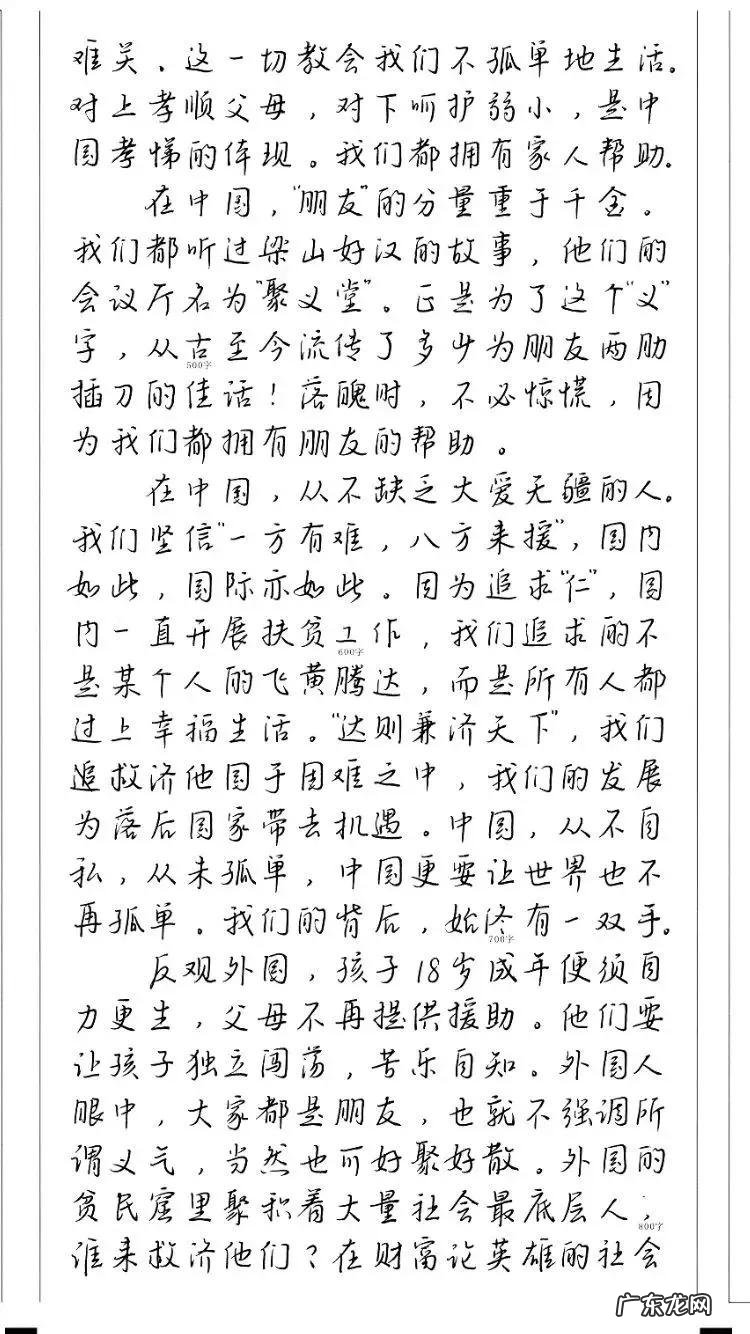 难关。这一切教会我们不孤单地生活。
对上孝顺父母，对下呵护弱小，是中
国孝悌的体现。我们都拥有家人帮助。
在中国，“朋友”的分量重于千金。
我们都听过梁山好汉的故事，他们的
会议厅名为“聚义堂”。正是为了这个“义”
字，从古至今流传了多少为朋友两肋
500字
插刀的佳话！落魄时，不必惊慌，因
为我们都拥有朋友的帮助。
在中国，从不缺乏大爱无疆的人。
我们坚信“一方有难，八方来援”，国内
如此，国际亦如此。因为追求“仁”，国
内一直开展扶贫工作，我们追求的不
600字
是某个人的飞黄腾达，而是所有人都
过上幸福生活。“达则兼济天下”，我们
追救济他国于困难之中，我们的发展
为落后国家带去机遇。中国，从不自
私，从未孤单，中国更要让世界也不
再孤单。我们的背后，始终有一双手。
700字
反观外国，孩子18岁成年便须自
力更生，父母不再提供援助。他们要
让孩子独立闯荡，苦乐自知。外国人
眼中，大家都是朋友，也就不强调所
谓义气，当然也可好聚好散。外国的
贫民窟里聚积着大量社会最底层人，
800字
谁来救济他们？在财富论英雄的社会
广东龙网